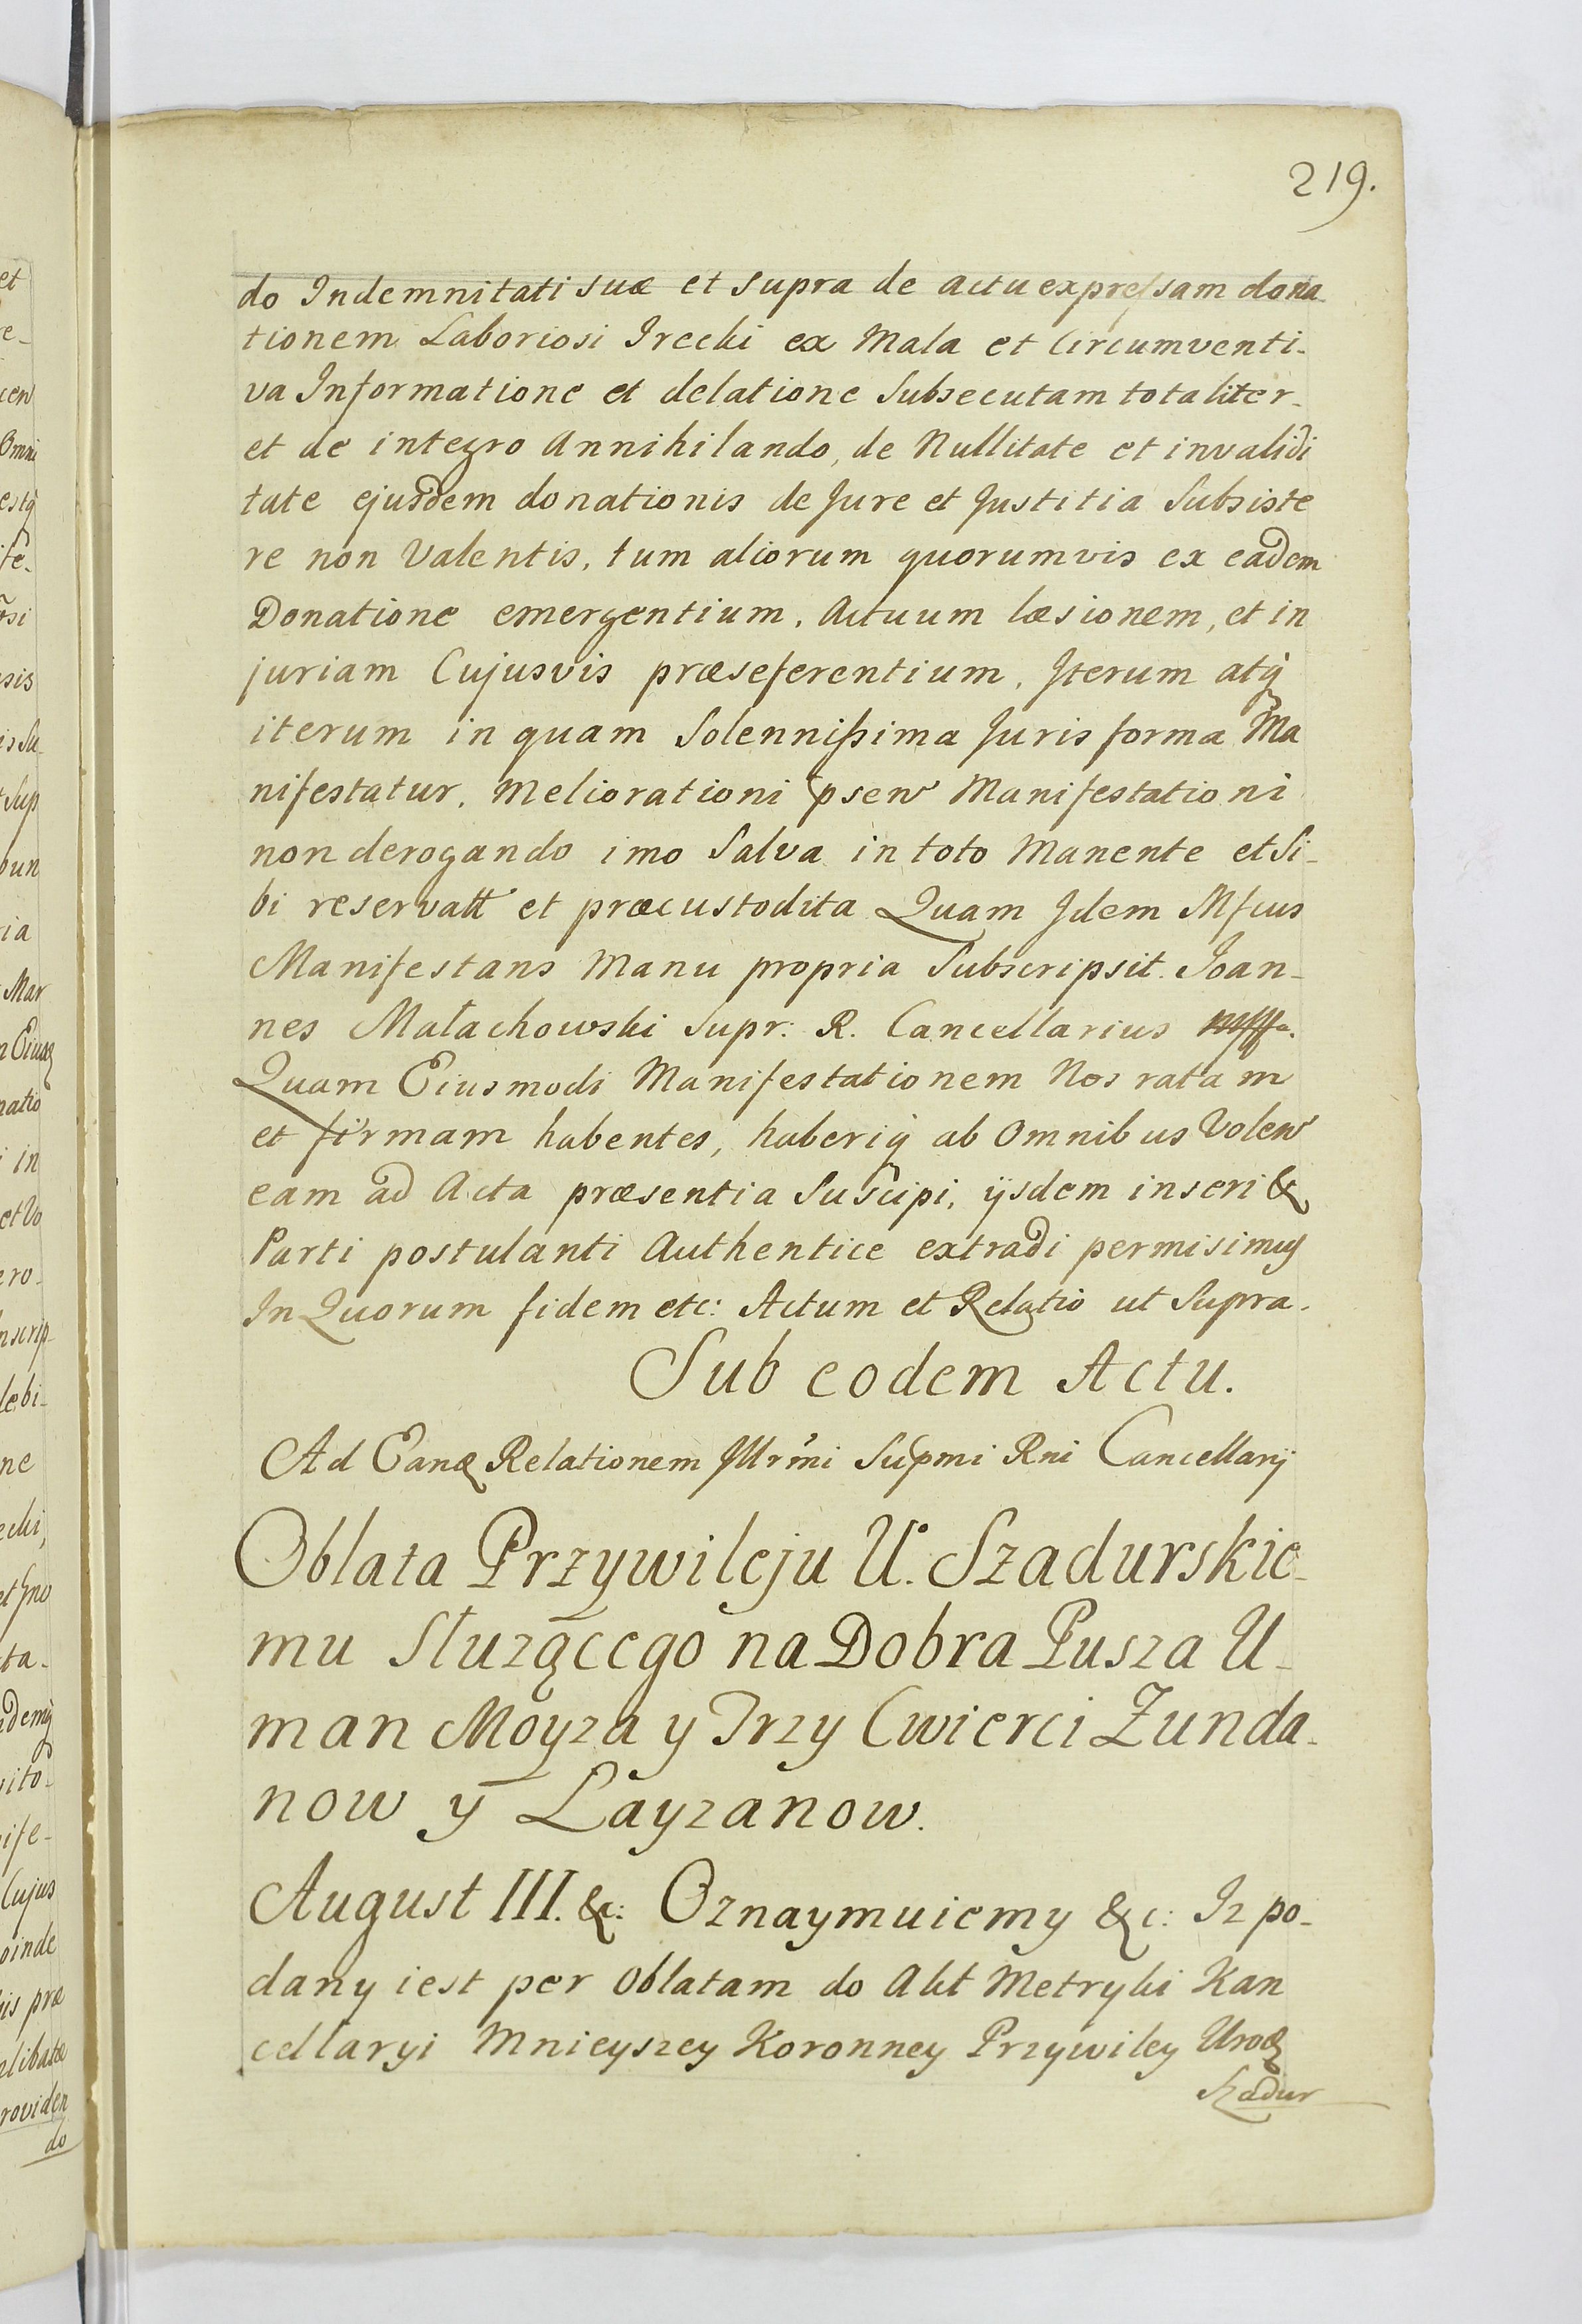 219.
do Indemnitati suæ et supra de actu expressam dona-
tionem Laboriosi Irecki ex Mala et Circumventi-
va Informatione et delatione Subsecutam totaliter-
et de integro Annihilando, de Nullitate et invalidi
tate ejusdem donationis de Jure et Justitia Subsiste
re non Valentis, tum aliorum quorumvis ex eadem
Donatione emergentium, Actuum læsionem, et in
juriam Cujusvis præseferentium, Iterum atq́
iterum in quam Solennissima Juris forma Ma
nifestatur, Meliorationi psen Manifestationi
non derogando imo Salva in toto Manente et Si-
bi reservatt et præcustodita Quam Idem Mfcus
Manifestans Manu propria Subscripsit. Joan-
nes Małachowski Supr: R. Cancellarius
Quam Eiusmodi Manifestationem Nos ratam
et firmam habentes, haberiq́ ab Omnibus Volen
eam ad Acta præsentia Suscipi, ijsdem inseri &
Parti postulanti Authentice extradi permisimus
In Quorum fidem etc: Actum et Relatio ut Supra.
Sub eodem Actu.
Ad Eandę Relationem Illrmi Supmi Rni Cancellarij
Oblata Przywileju U. Szadurskie-
mu Służącego na Dobra Pusza U-
man Moyza y Trzy Cwierci Zunda-
now y Layzanow.
August III. &c: Oznaymuiemy &c: Iz po-
dany iest per Oblatam do Akt Metryki Kan
cellaryi Mnieyszey Koronney Przywiley Urodz
Szadur
et